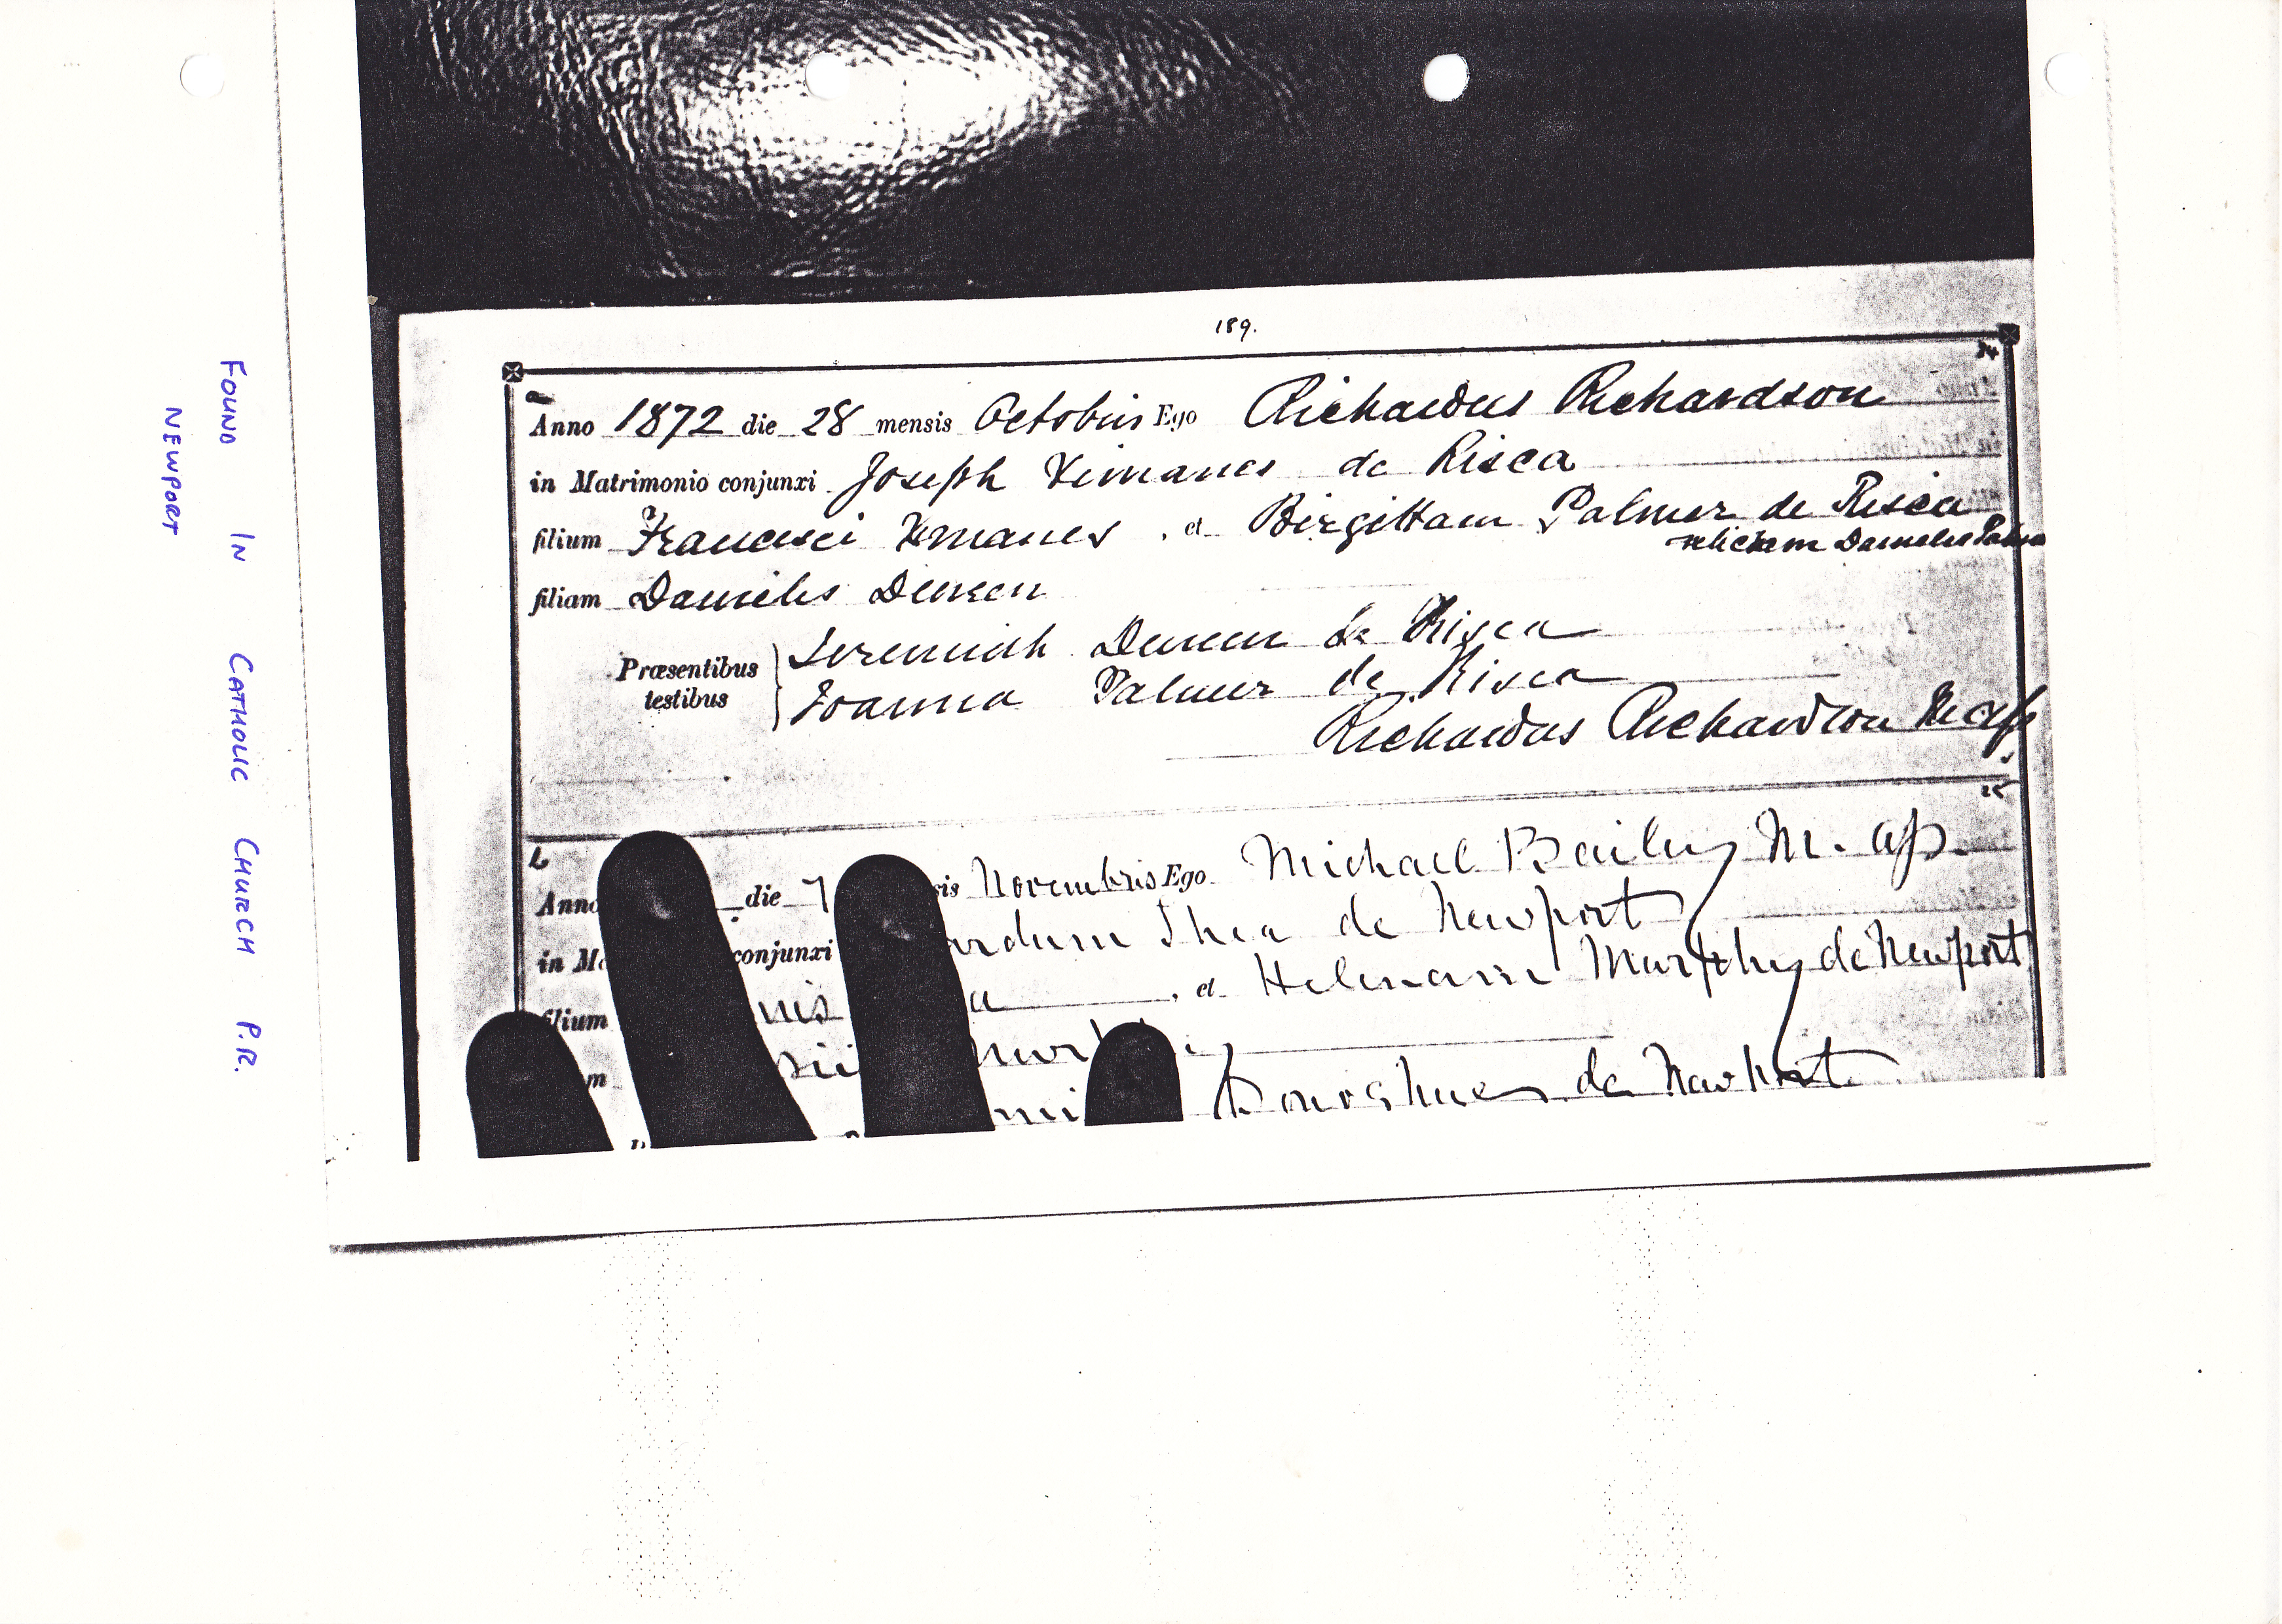 189.
Anno 1872 die 28 mensis Octobris Ego Richardus Richardson
in Matrimonio conjunxi Joseph Ximanes de Risca
filium Francisci Xmanes , et Birgittam Palmer de Risca
relictam Danielis Palmer
filiam Danielis Dineen
Præsentibus testibus
Jeremiah Dineen de Risca
Joanna Palmer de Risca
Richardus Richardson M. ap
Anno die 7 Novembris Ego Michael Bailey M. ap.
in conjunxi Shea de Newport
filium , et Helenam Murphy de Newport
Donoghue de Newport
FOUND IN CATHOLIC CHURCH P.R.
NEWPORT